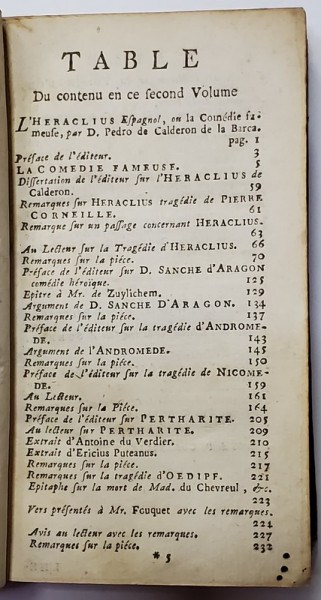 TABLE
Du contenu en ce second Volume
L'HERACLIUS Espagnol, ou la Comédie fa-
meuse, par D. Pedro de Calderon de la Barca.
pag. 1
Préface de l'éditeur. 3
LA COMEDIE FAMEUSE. 5
Dissertation de l'éditeur sur l'HERACLIUS de
Calderon. 59
Remarques sur HERACLIUS tragédie de PIERRE
CORNEILLE. 61
Remarque sur un passage concernant HERACLIUS.
63
Au Lecteur sur la Tragédie d'HERACLIUS. 66
Remarques sur la piéce. 70
Préface de l'éditeur sur D. SANCHE d'ARAGON
comédie héroïque. 125
Epitre à Mr. de Zuylichem. 129
Argument de D. SANCHE D'ARAGON. 134
Remarques sur la piéce. 137
Préface de l'éditeur sur la tragédie d'ANDROME-
DE. 143
Argument de l'ANDROMEDE. 145
Remarques sur la piéce. 150
Préface de l'éditeur sur la tragédie de NICOME-
DE. 159
Au Lecteur. 161
Remarques sur la Piéce. 164
Préface de l'éditeur sur PERTHARITE. 205
Au lecteur sur PERTHARITE. 209
Extrait d'Antoine du Verdier. 210
Extrait d'Ericius Puteanus. 215
Remarques sur la piéce. 217
Remarques sur la tragédie d'OEDIPE. 221
Epitaphe sur la mort de Mad. du Chevreul, &c.
223
Vers présentés à Mr. Fouquet avec les remarques.
224
Avis au lecteur avec les remarques. 227
Remarques sur la piéce. 232
* 5